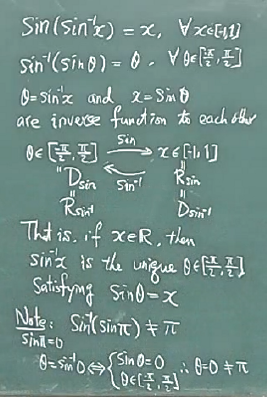 Sin(Sin⁻¹x) = x, ∀ x∈[-1,1]
sin⁻¹(sinθ) = θ, ∀ θ∈[-π/2, π/2]
θ=sin⁻¹x and x=Sinθ
are inverse function to each other
θ∈[-π/2, π/2] ⇄ x∈[-1,1]
sin
sin⁻¹
D sin R sin
R sin⁻¹ D sin⁻¹
That is, if x∈R, then
sin⁻¹x is the unique θ∈[-π/2, π/2]
Satisfying Sinθ=x
Note: Sin⁻¹(sinπ) ≠ π
sinπ=0
θ=sin⁻¹0 ⇔ { Sinθ=0 ∴ θ=0 ≠ π
θ∈[-π/2, π/2]